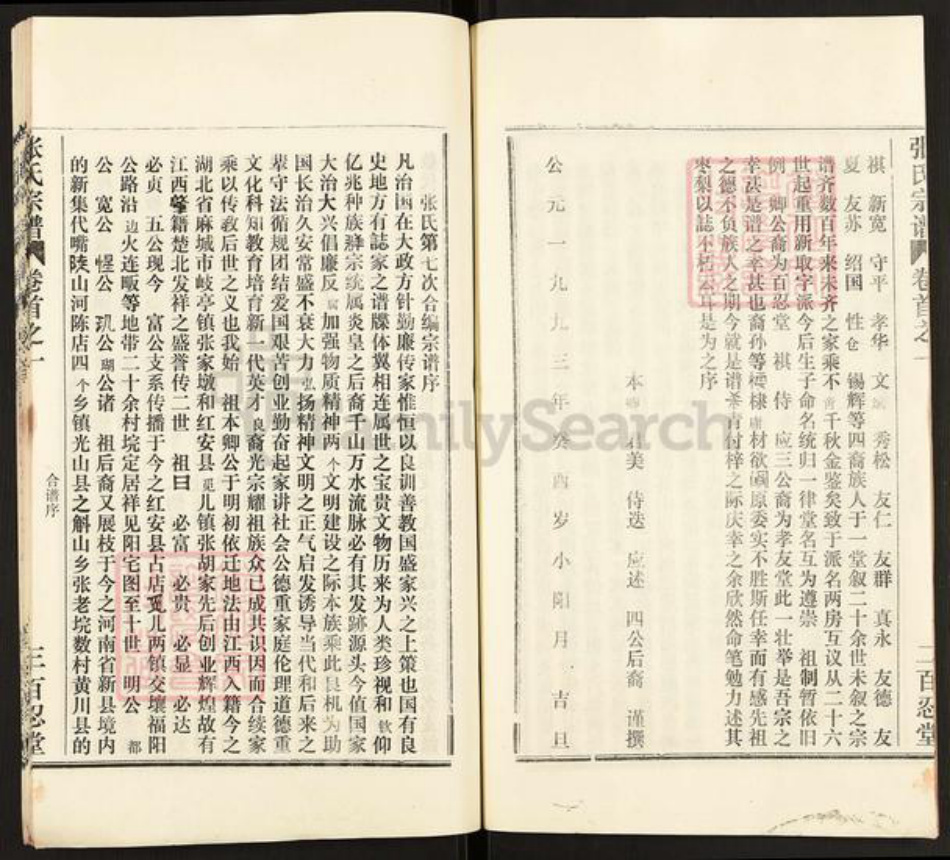 张氏宗谱 卷首之一 二百忍堂
祺 新宽 守平 孝华 文 秀松 友仁 友群 真永 友德 友
夏 友苏 绍国 性仓 锡辉等四裔族人于一堂叙二十余世未叙之宗
谱齐数百年来未齐之家乘不 千秋金鉴矣致于派名两房互议从二十六
世起重用新取字派今后生子命名统归一律堂名互为遵崇 祖制暂依旧
例 卿公裔为百忍堂 祺 侍 应三公裔为孝友堂此一壮举是吾宗之
幸甚是谱之幸甚也裔孙等 棣 材欲 原委实不胜斯任幸而有感先祖
之德不负族人之期今就是谱 青付梓之际庆幸之余欣然命笔勉力述其
枣梨以誌不朽云耳是为之序
本 君美 侍选 应述 四公后裔 谨撰
公元一九九三年癸酉岁小阳月 吉旦
张氏第七次合编宗谱序
凡治国在大政方针勤廉传家惟恒以良训善教国盛家兴之上策也国有良
史地方有誌家之谱牒体翼相连属世之宝贵文物历来为人类珍视和 钦仰
亿兆种族 宗统属炎皇之后裔千山万水流脉必有其发跡源头今值国家
大治大兴倡廉反腐加强物质精神两个文明建设之际本族乘此良机为助
国长治久安常盛不衰大力弘扬精神文明之正气启发诱导当代和后来之
辈守法循规团结爱国艰苦创业勤奋起家讲社会公德重家庭伦理道德重
文化科知教育培育新一代英才良裔光宗耀祖族众已成共识因而合续家
乘以传教后世之义也我始 祖本卿公于明初依迁地法由江西入籍今之
湖北省麻城市岐亭镇张家墩和红安县觅儿镇张胡家先后创业辉煌故有
江西肇籍楚北发祥之盛誉传二世 祖曰 必富 必贵 必显 必达
必贞 五公现今 富公支系传播于今之红安县占店觅儿两镇交壤福阳
公路沿边火连畈等地带二十余村垸定居祥见阳宅图至十世 明公 都
公 宽公 惺公 玑公 瑚公诸 祖后裔又展枝于今之河南省新县境内
的新集代嘴陡山河陈店四个乡镇光山县之斛山乡张老垸数村黄川县的
合谱序
张氏宗谱 卷首之一 三百忍堂
FamilySearch